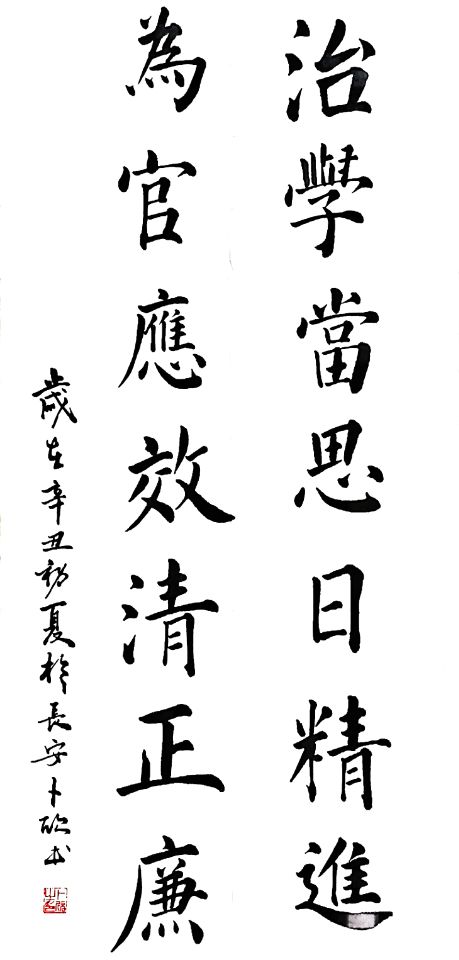 治學當思日精進
為官應效清正廉
歲在辛丑初夏於長安卜欣書